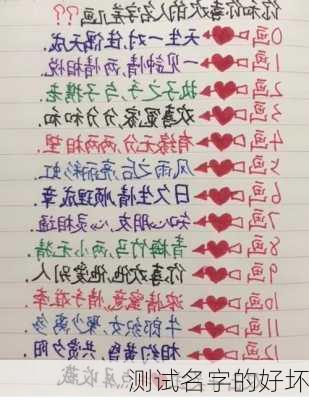 你和你喜欢的人名字差几画??
0画 天生一对,佳偶天成.
1画 一见钟情,两情相悦.
2画 执子之手,与子携老.
3画 欢喜冤家,分分和和.
4画 有缘无分,两两相望.
5画 风雨之后,亮丽彩虹.
6画 日久生情,顺理成章.
7画 知心朋友,心灵相通.
8画 青梅竹马,两小无猜.
9画 你喜欢他,他爱别人
10画 浓情蜜意,情于难牵.
11画 牛郎织女,聚少离多
12画 相约黄昏,共赏夕阳.
点屏收藏
测试名字的好坏